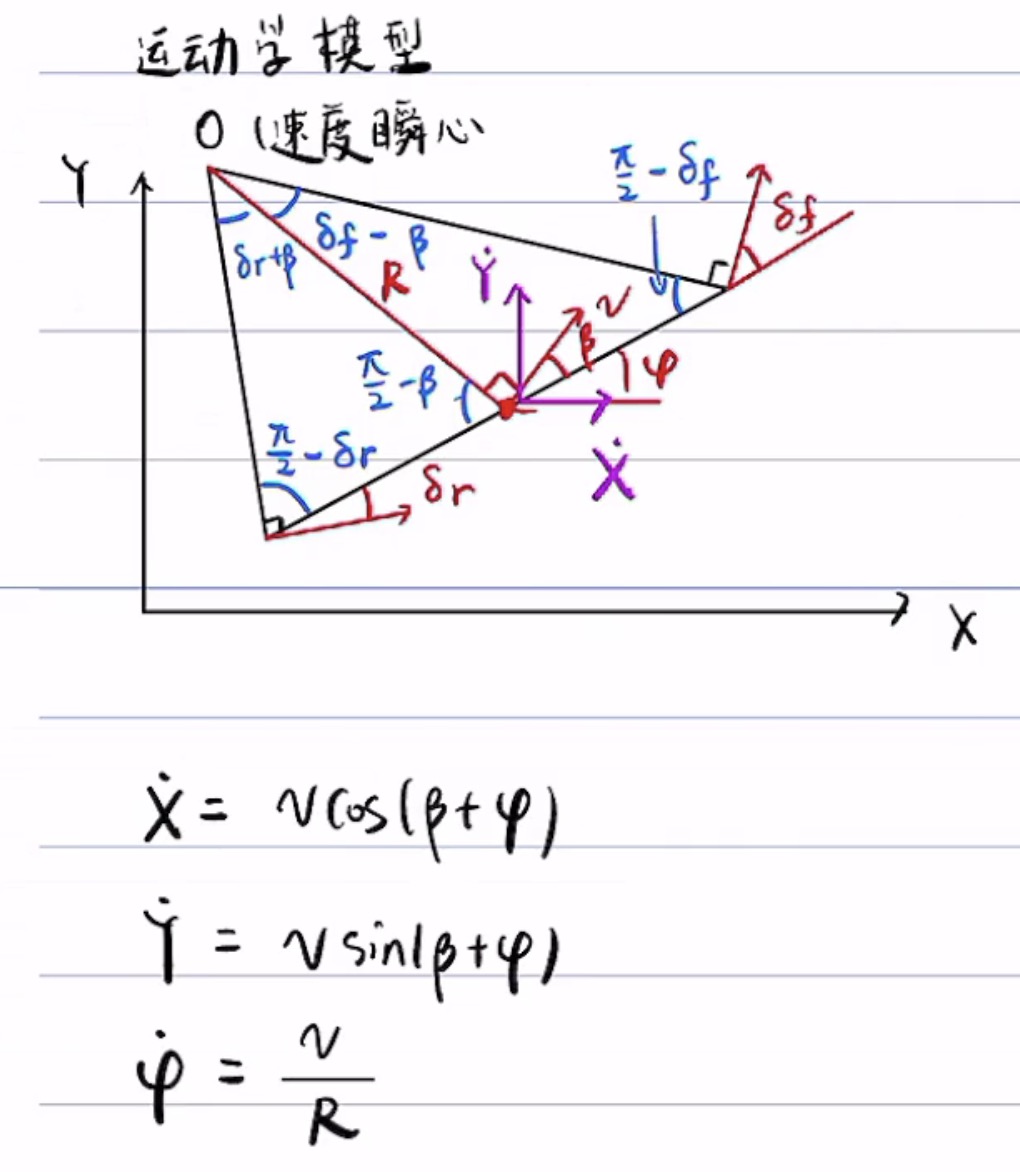 运动学模型
O (速度瞬心
Y
π/2 - δf
δf
δr+β
δf - β
R
Ẏ
v
β
φ
π/2 - β
Ẋ
π/2 - δr
δr
X
Ẋ = v cos(β+φ)
Ẏ = v sin(β+φ)
φ̇ = v/R